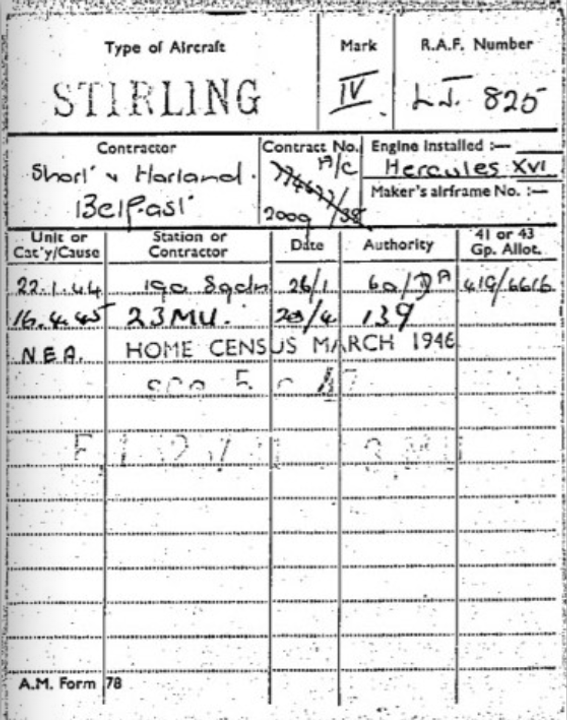 Type of Aircraft Mark R.A.F. Number
STIRLING IV. LJ. 825
Contractor Contract No. Engine Installed :—
Short & Harland. A/C Hercules XVI
Belfast Maker's airframe No. :—
2009
Unit or Cat'y/Cause Station or Contractor Date Authority 41 or 43 Gp. Allot.
22.1.44 190 Sqdn 26/1 60/DA 419/6616
16.4.45 23MU. 20/4 139
N E A. HOME CENSUS MARCH 1946
A.M. Form 78